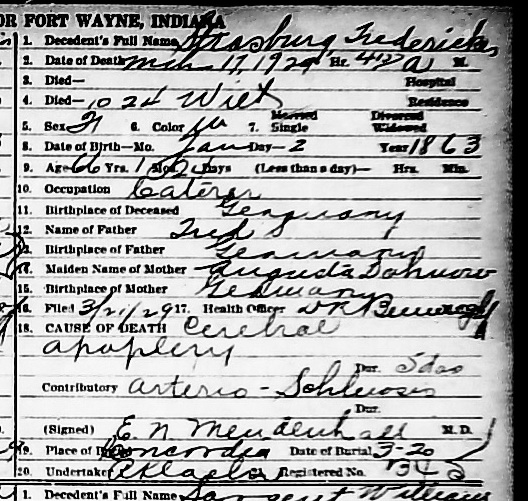 OR FORT WAYNE, INDIANA
1. Decedent's Full Name Strasburg, Frederick
2. Date of Death Mch 17, 1929 Hr. A M.
3. Died— Hospital
4. Died— 1024 Wilt Residence
5. Sex 6. Color W 7. Married Single Divorced Widowed
8. Date of Birth—Mo. Jan Day— 2 Year 1863
9. Age 66 Yrs. 1 Mo. Days (Less than a day)— Hrs. Min.
10. Occupation Caterer
11. Birthplace of Deceased Germany
12. Name of Father Fred S
13. Birthplace of Father Germany
14. Maiden Name of Mother Augusta
15. Birthplace of Mother Germany
16. Filed 3/21/29 17. Health Officer
18. CAUSE OF DEATH Cerebral
apoplexy
Dur. 5 das
Contributory Arterio - Schlerosis
Dur.
(Signed) E N Mendenhall M. D.
19. Place of Concordia Date of Burial 3-20
20. Undertaker Registered No. 342
1. Decedent's Full Name Sargent